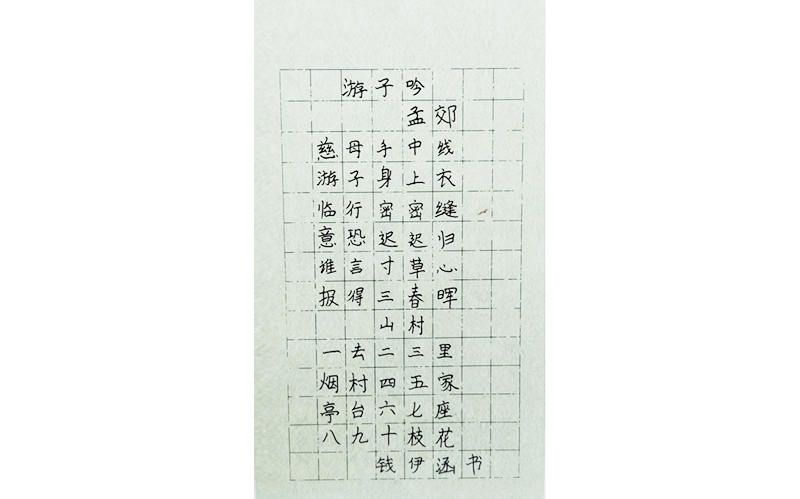 游子吟
孟郊
慈母手中线
游子身上衣
临行密密缝
意恐迟迟归
谁言寸草心
报得三春晖
山村
一去二三里
烟村四五家
亭台六七座
八九十枝花
钱伊涵书